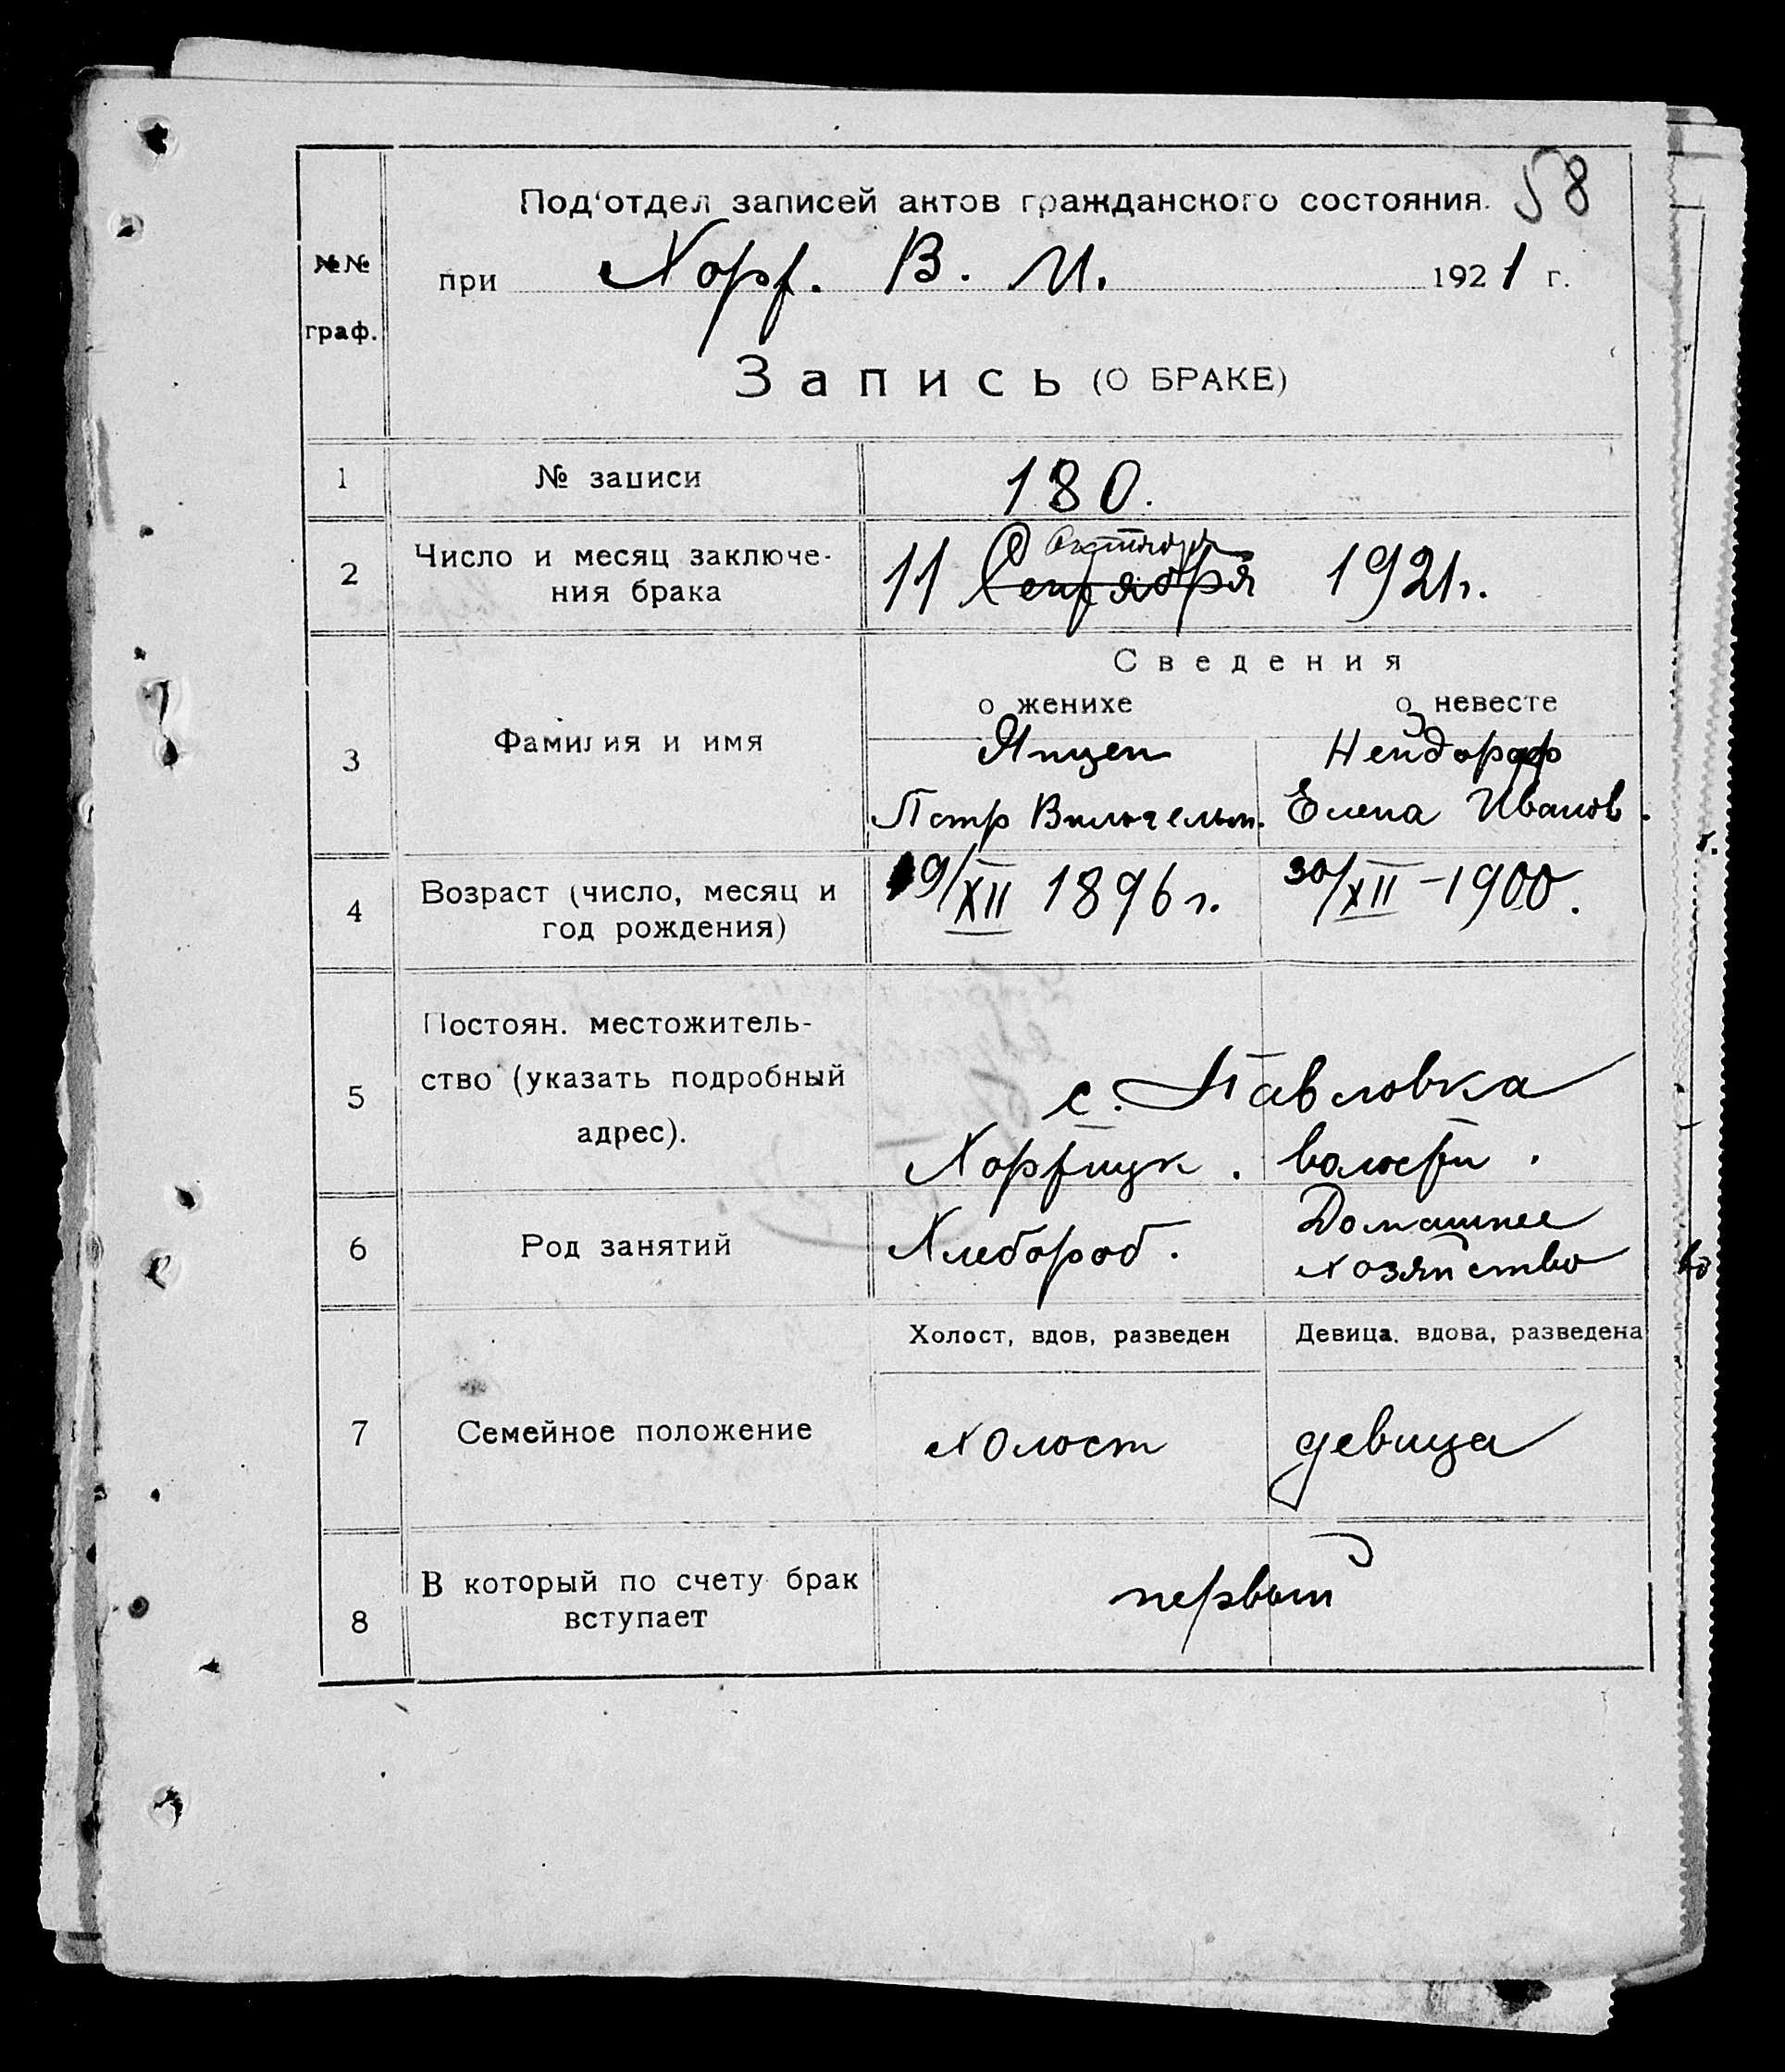 58
Под'отдел записей актов гражданского состояния.
№№
граф.
при Хорт. В. И. 1921 г.
Запись (О БРАКЕ)
1 № записи 180.
2 Число и месяц заключе-
ния брака
Октября
11 Сентября 1921г.
Сведения
о женихе о невесте
3 Фамилия и имя
Янцен Нейдорф
Петр Вильгельм. Елена Иванов.
4 Возраст (число, месяц и
год рождения)
19/XII 1896 г. 30/XII-1900.
5 Постоян. местожитель-
ство (указать подробный
адрес).
с. Павловка
Хортицк. волости.
6 Род занятий
Хлебороб. Домашнее
хозяйство
Холост, вдов, разведен Девица, вдова, разведена
7 Семейное положение холост девица
8 В который по счету брак
вступает
первый